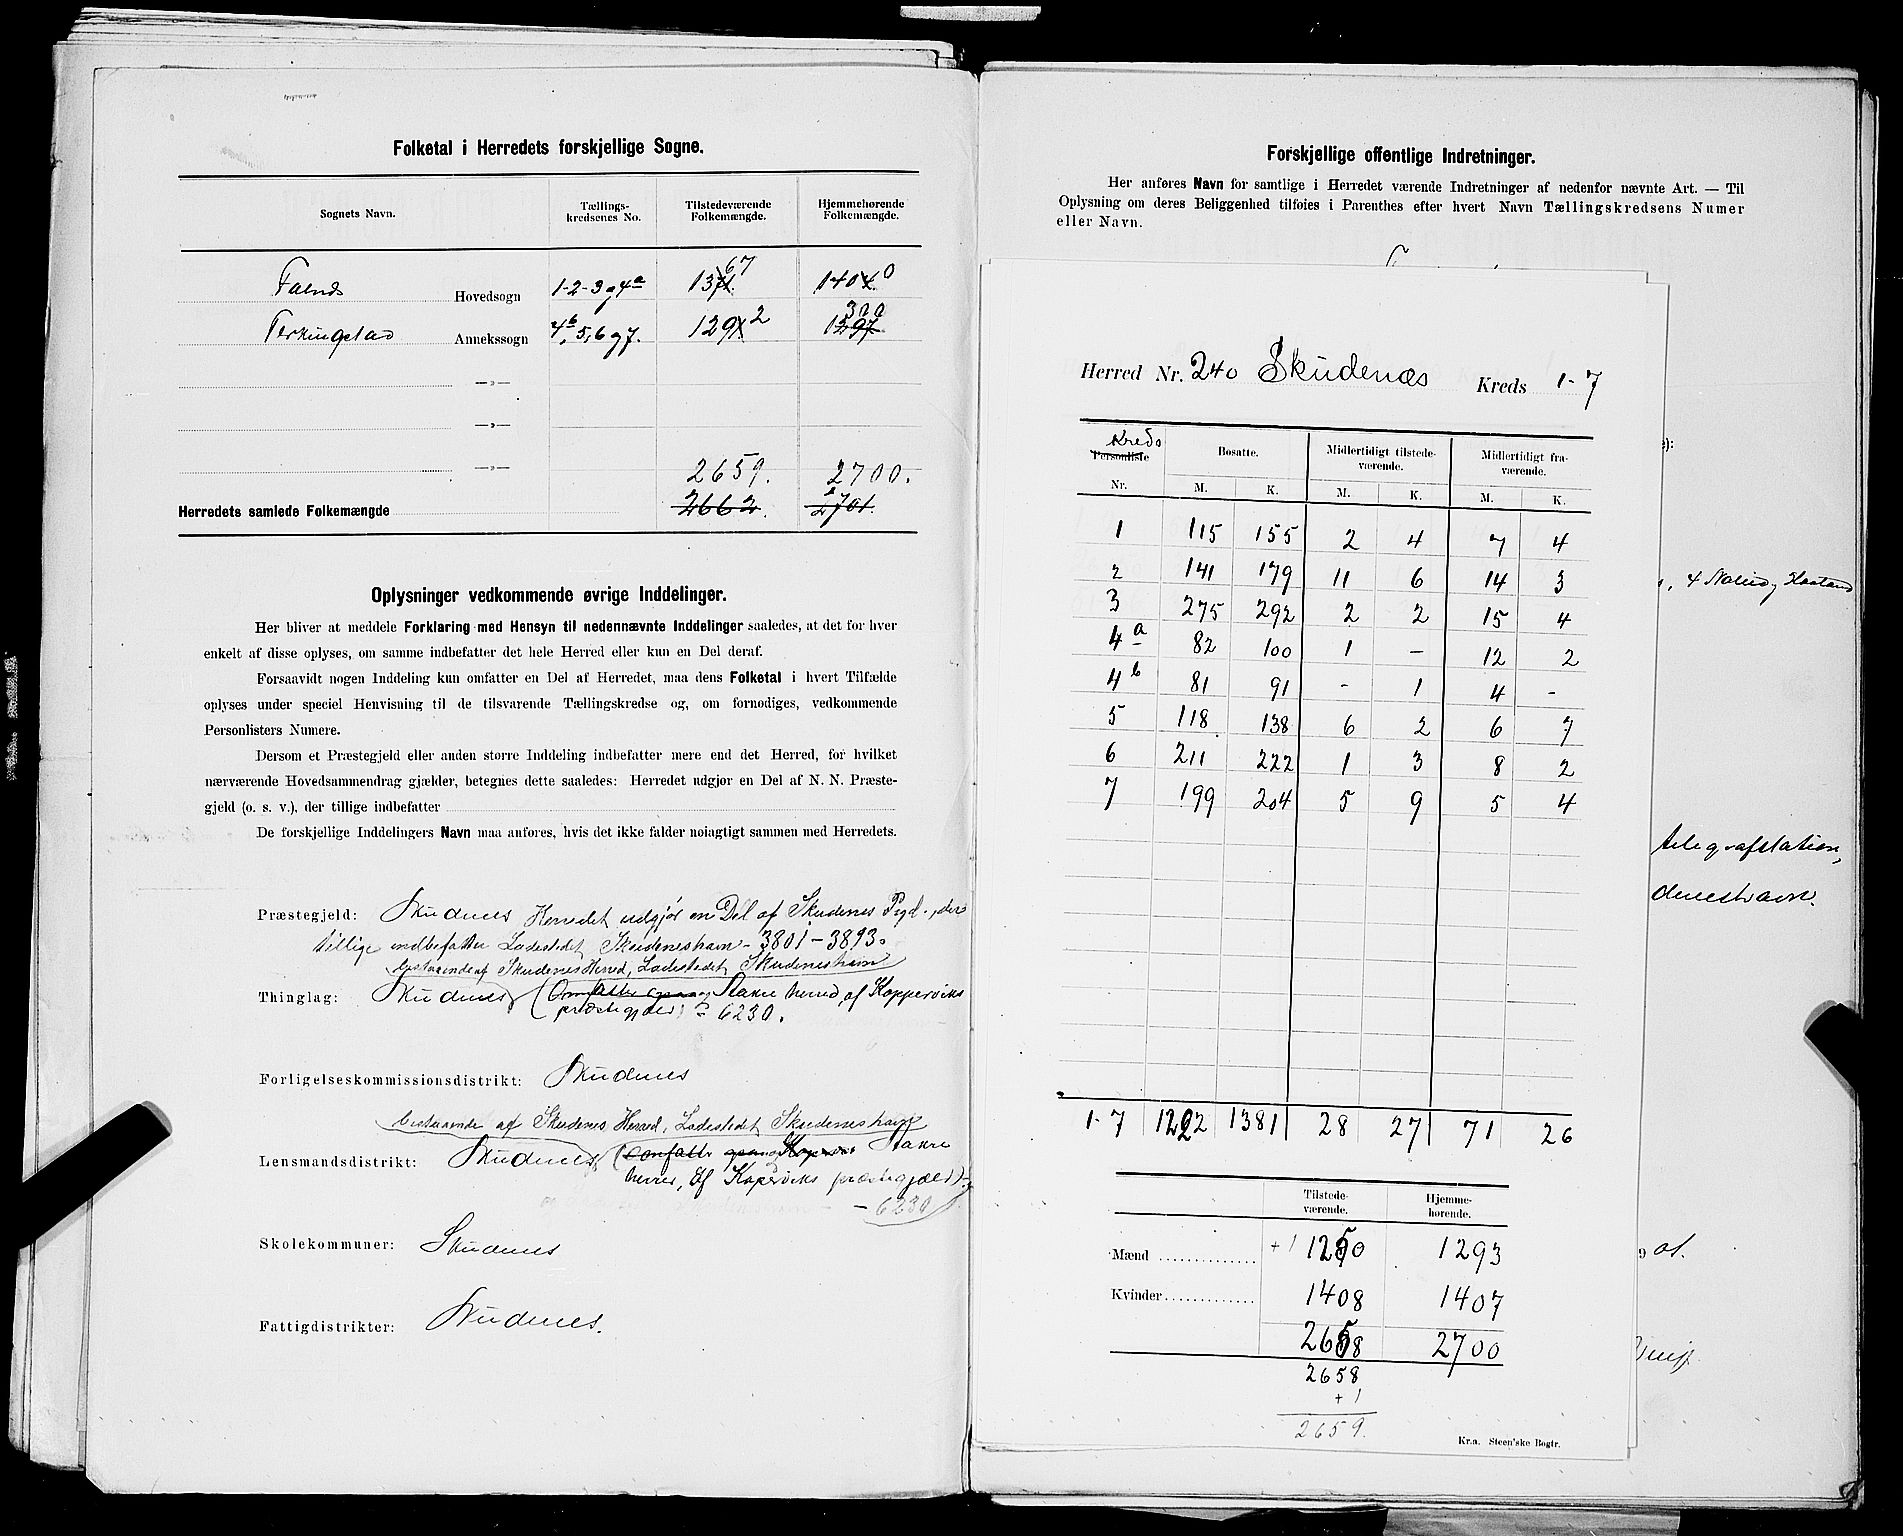 Folketal i Herredets forskjellige Sogne.
Sognets Navn. Tællings-kredsenes No. Tilstedeværende Folkemængde. Hjemmehørende Folkemængde.
Falnes Hovedsogn 1-2-3 og 4a 1371 67 1404 0
Ferkingstad Annekssogn 4b, 5, 6 og 7. 1291 2 1297 300
—»—
—»—
—»— 2659. 2700.
Herredets samlede Folkemængde 2662. 2701.
Oplysninger vedkommende øvrige Inddelinger.
Her bliver at meddele Forklaring med Hensyn til nedennævnte Inddelinger saaledes, at det for hver
enkelt af disse oplyses, om samme indbefatter det hele Herred eller kun en Del deraf.
Forsaavidt nogen Inddeling kun omfatter en Del af Herredet, maa dens Folketal i hvert Tilfælde
oplyses under speciel Henvisning til de tilsvarende Tællingskredse og, om fornødiges, vedkommende
Personlisters Numere.
Dersom et Præstegjeld eller anden større Inddeling indbefatter mere end det Herred, for hvilket
nærværende Hovedsammendrag gjælder, betegnes dette saaledes: Herredet udgjør en Del af N. N. Præste-
gjeld (o. s. v.), der tillige indbefatter
De forskjellige Inddelingers Navn maa anføres, hvis det ikke falder nøiagtigt sammen med Herredets.
Præstegjeld: Skudenes Herredet udgjør en Del af Skudenes Pgd., der
tillige indbefatter Ladestedet Skudeneshavn - 3801 - 3893.
bestaaende af Skudenes Herred, Ladestedet Skudeneshavn
Thinglag: Skudenes (Omfatter ogsaa og Stakre herred, af Kopperviks
præstegjeld) = 6230.
Forligelseskommissionsdistrikt: Skudenes
bestaaende af Skudenes Herred, Ladestedet Skudeneshavn
Lensmandsdistrikt: Skudenes, (omfatter ogsaa og Stakre
herred, af Kopervik præstegjæld)
- 6230
Skolekommuner: Skudenes
Fattigdistrikter: Skudenes.
Forskjellige offentlige Indretninger.
Her anføres Navn for samtlige i Herredet værende Indretninger af nedenfor nævnte Art. — Til
Oplysning om deres Beliggenhed tilføies i Parenthes efter hvert Navn Tællingskredsens Numer
eller Navn.
Herred Nr. 240 Skudenæs Kreds 1-7
Kreds
Personliste Bosatte. Midlertidigt tilstede-værende. Midlertidigt fra-værende.
Nr. M. K. M. K. M. K.
1 115 155 2 4 7 4
2 141 179 11 6 14 3
3 275 292 2 2 15 4
4a 82 100 1 — 12 2
4b 81 91 - 1 4 -
5 118 138 6 2 6 7
6 211 222 1 3 8 2
7 199 204 5 9 5 4
1-7 1222 1381 28 27 71 26
Tilstede-værende. Hjemme-hørende.
Mænd +1 1250 1293
Kvinder 1408 1407
2658 2700
2658
+1
2659.
Kr.a. Steen'ske Bogtr.
e):
telegrafstation,
deneshavn.